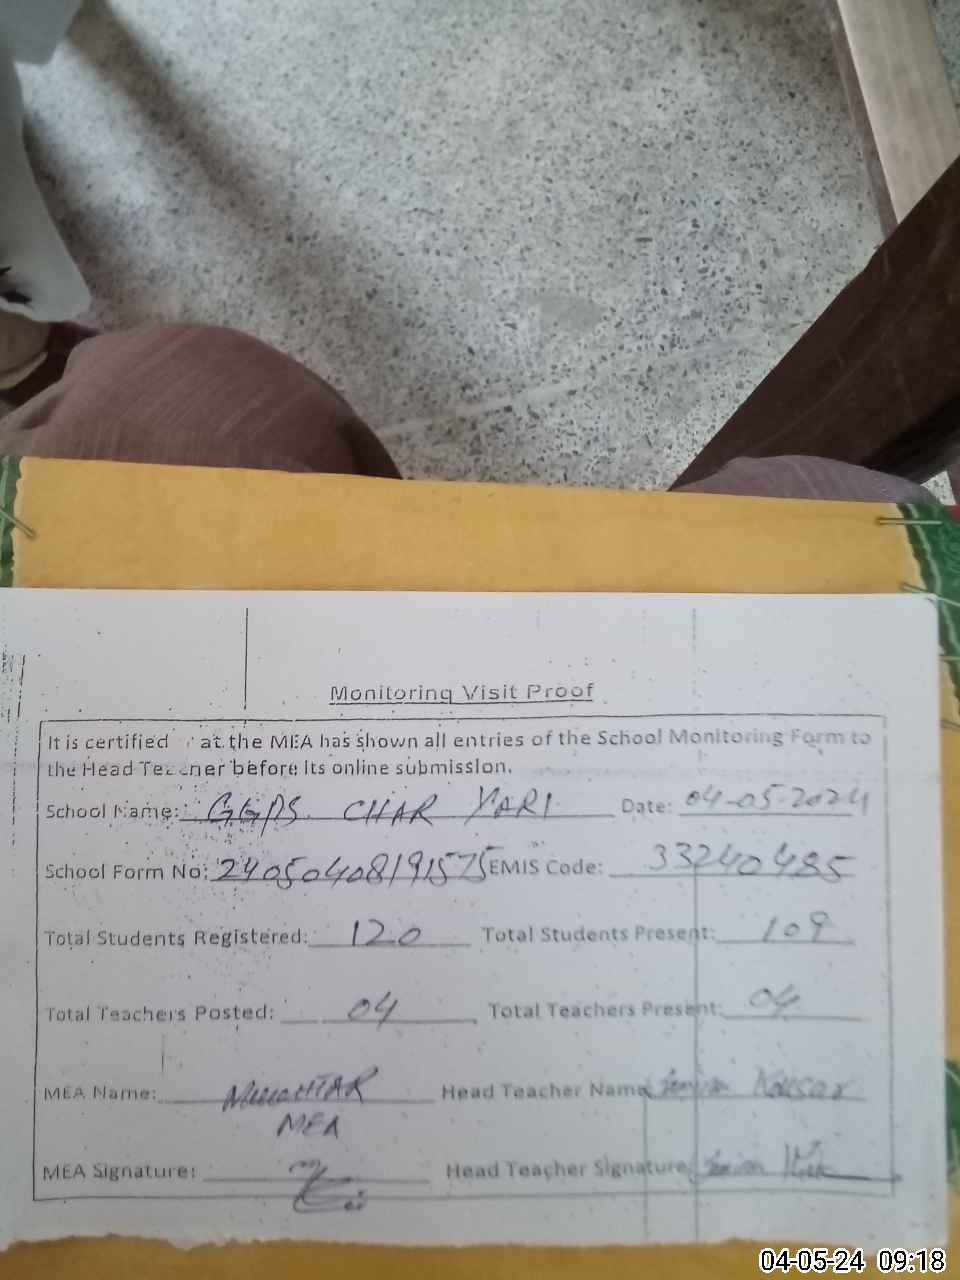 Monitoring Visit Proof
It is certified at the MEA has shown all entries of the School Monitoring Form to
the Head Teacher before its online submission.
School Name: GGPS CHAR YARI Date: 04-05-2024
School Form No: 24050408191575 EMIS Code: 33240485
Total Students Registered: 120 Total Students Present: 109
Total Teachers Posted: 04 Total Teachers Present: 04
MEA Name: Head Teacher Name Kousar
MEA
MEA Signature: Head Teacher Signature
04-05-24 09:18